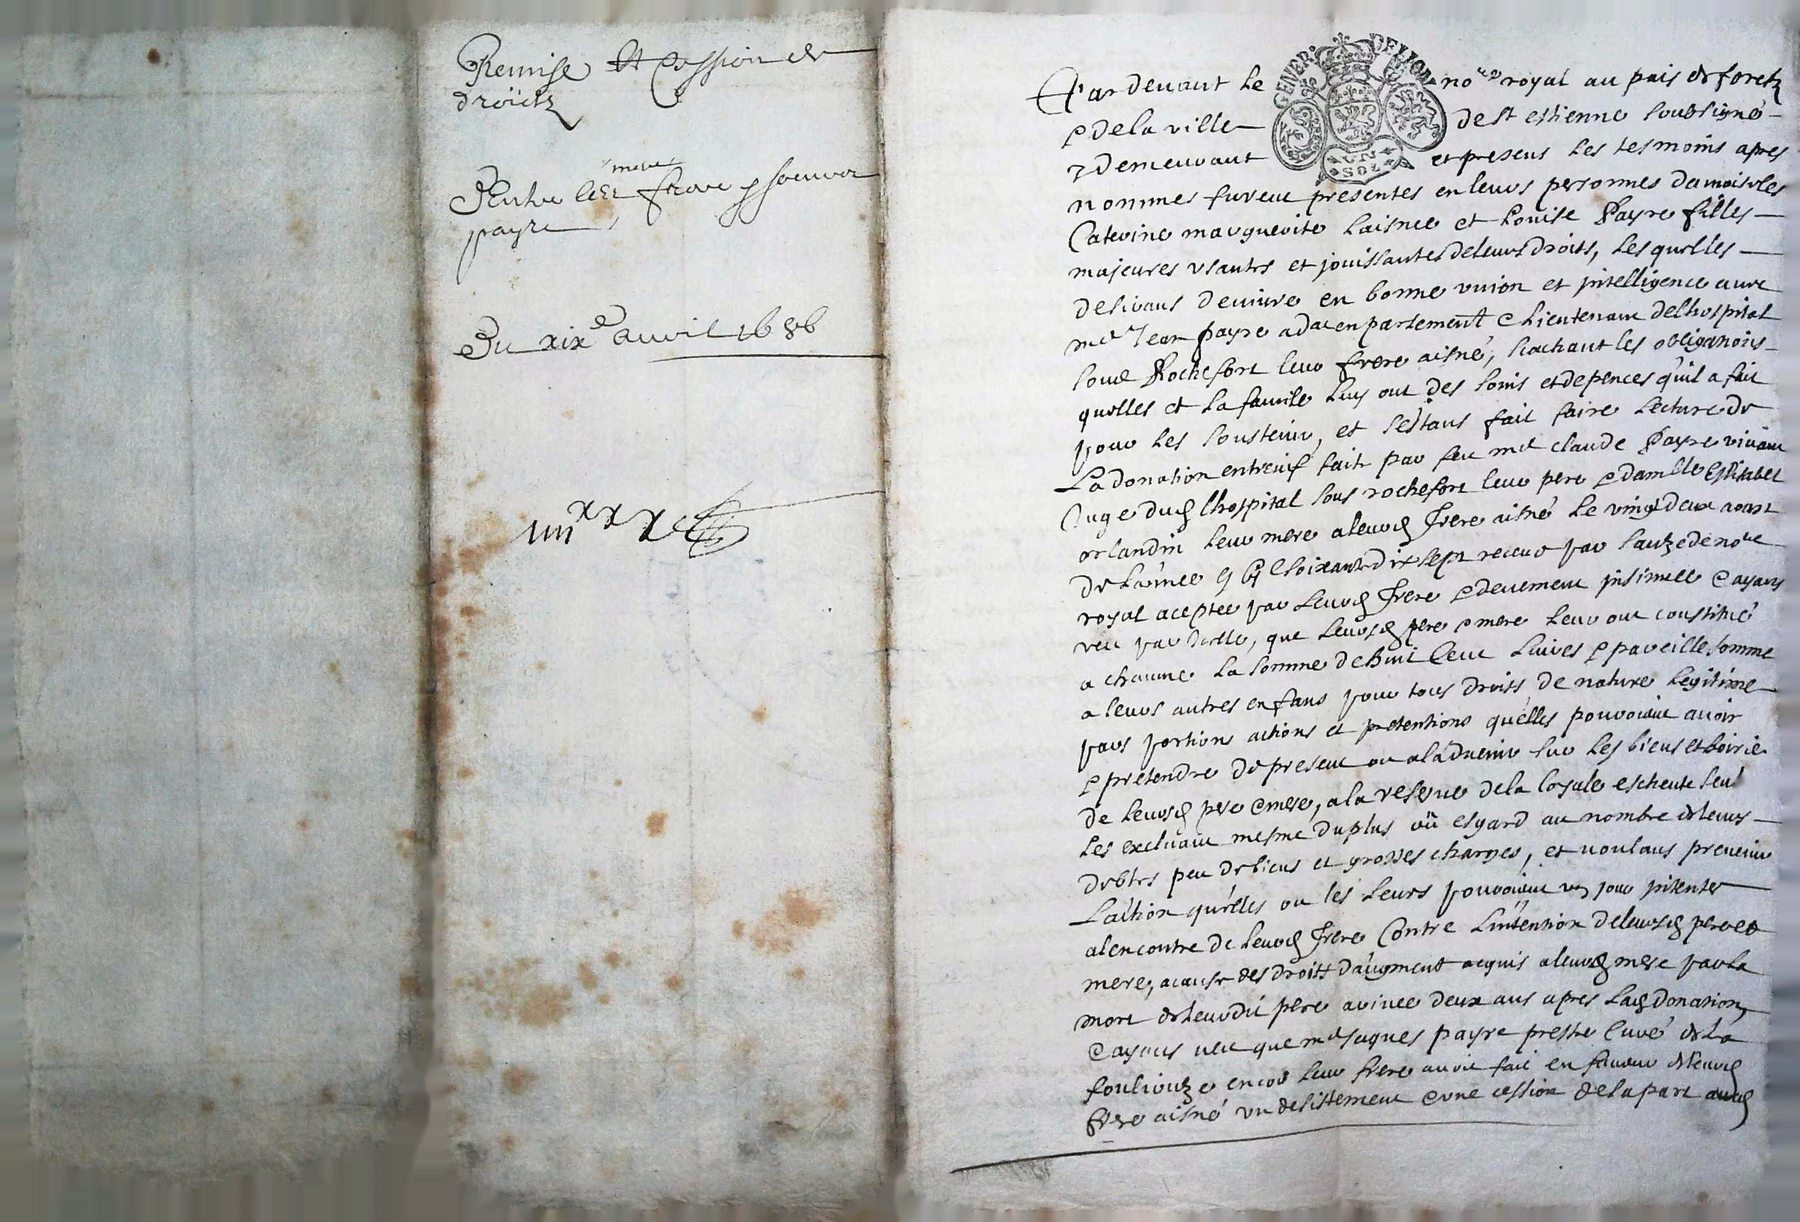 Remise Et Cession de
droictz
Entre les mre frere & soeurs
payre
Du xixe Avril 1686
GENER. DE LION
SOL
Par devant le nore royal au pais de foretz
& de la ville de st estienne soubsigné
& demeurant et presens les tesmoins apres
nommes furent presentes en leurs personnes damoiselles
Caterine marguerite laisnee et Louise Payre filles
majeures usantes et jouissantes de leurs droits, lesquelles
desirans de vivre en bonne union et intelligence avec
me Jean payre advocat en parlement & lieutenant de lhospital
soub Rochefort leur frere aisné, sachant les obligations
quelles et la famile luy ont des soins et depences qu'il a fait
pour les soustenir, et s'estans fait faire lecture de
La donation entrevif faite par feu me claude Payre vivant
Juge dud lhospital sous rochefort leur pere & damlle Elisabet
orlandin leur mere a leurd frere aisné le vingtdeux aoust
de l'année soixantedix sept receue par sauzede nore
royal aceptee par leurd frere & deuement insinuee & ayans
veu par icelle, que leursd pere & mere leur ont constitué
a chacune la somme de huit cent livres & pareille somme
a leurs autres enfans pour tous droits de nature legitime
pars portions actions et pretentions qu'elles pouvoient avoir
& pretendre de present ou a ladvenir sur les biens et hoirie
de leursd pere & mere, a la reserve de la loyale escheute seul
les excluant mesme du plus oü esgard au nombre de leurs
debtes peu de biens et grosses charges, et voulans prevenir
L'action qu'elles ou les leurs pouvoient un jour intenter
alencontre de leurd frere Contre l'intention de leursd pere et
mere, a cause des droits d'augment acquis a leurd mere par la
mort de leurdit pere arivee deux ans apres lad donation,
& ayans veu que me Jaques payre prestre curé de la
fouliouze encor leur frere avoit fait en faveur de leurd
frere aisné un desistement & une cession de la part aud